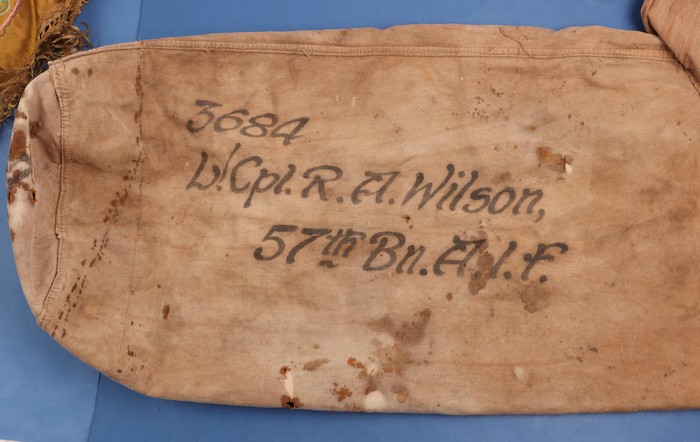 3684
L/Cpl. R. A. Wilson,
57th Bn. A. I. F.